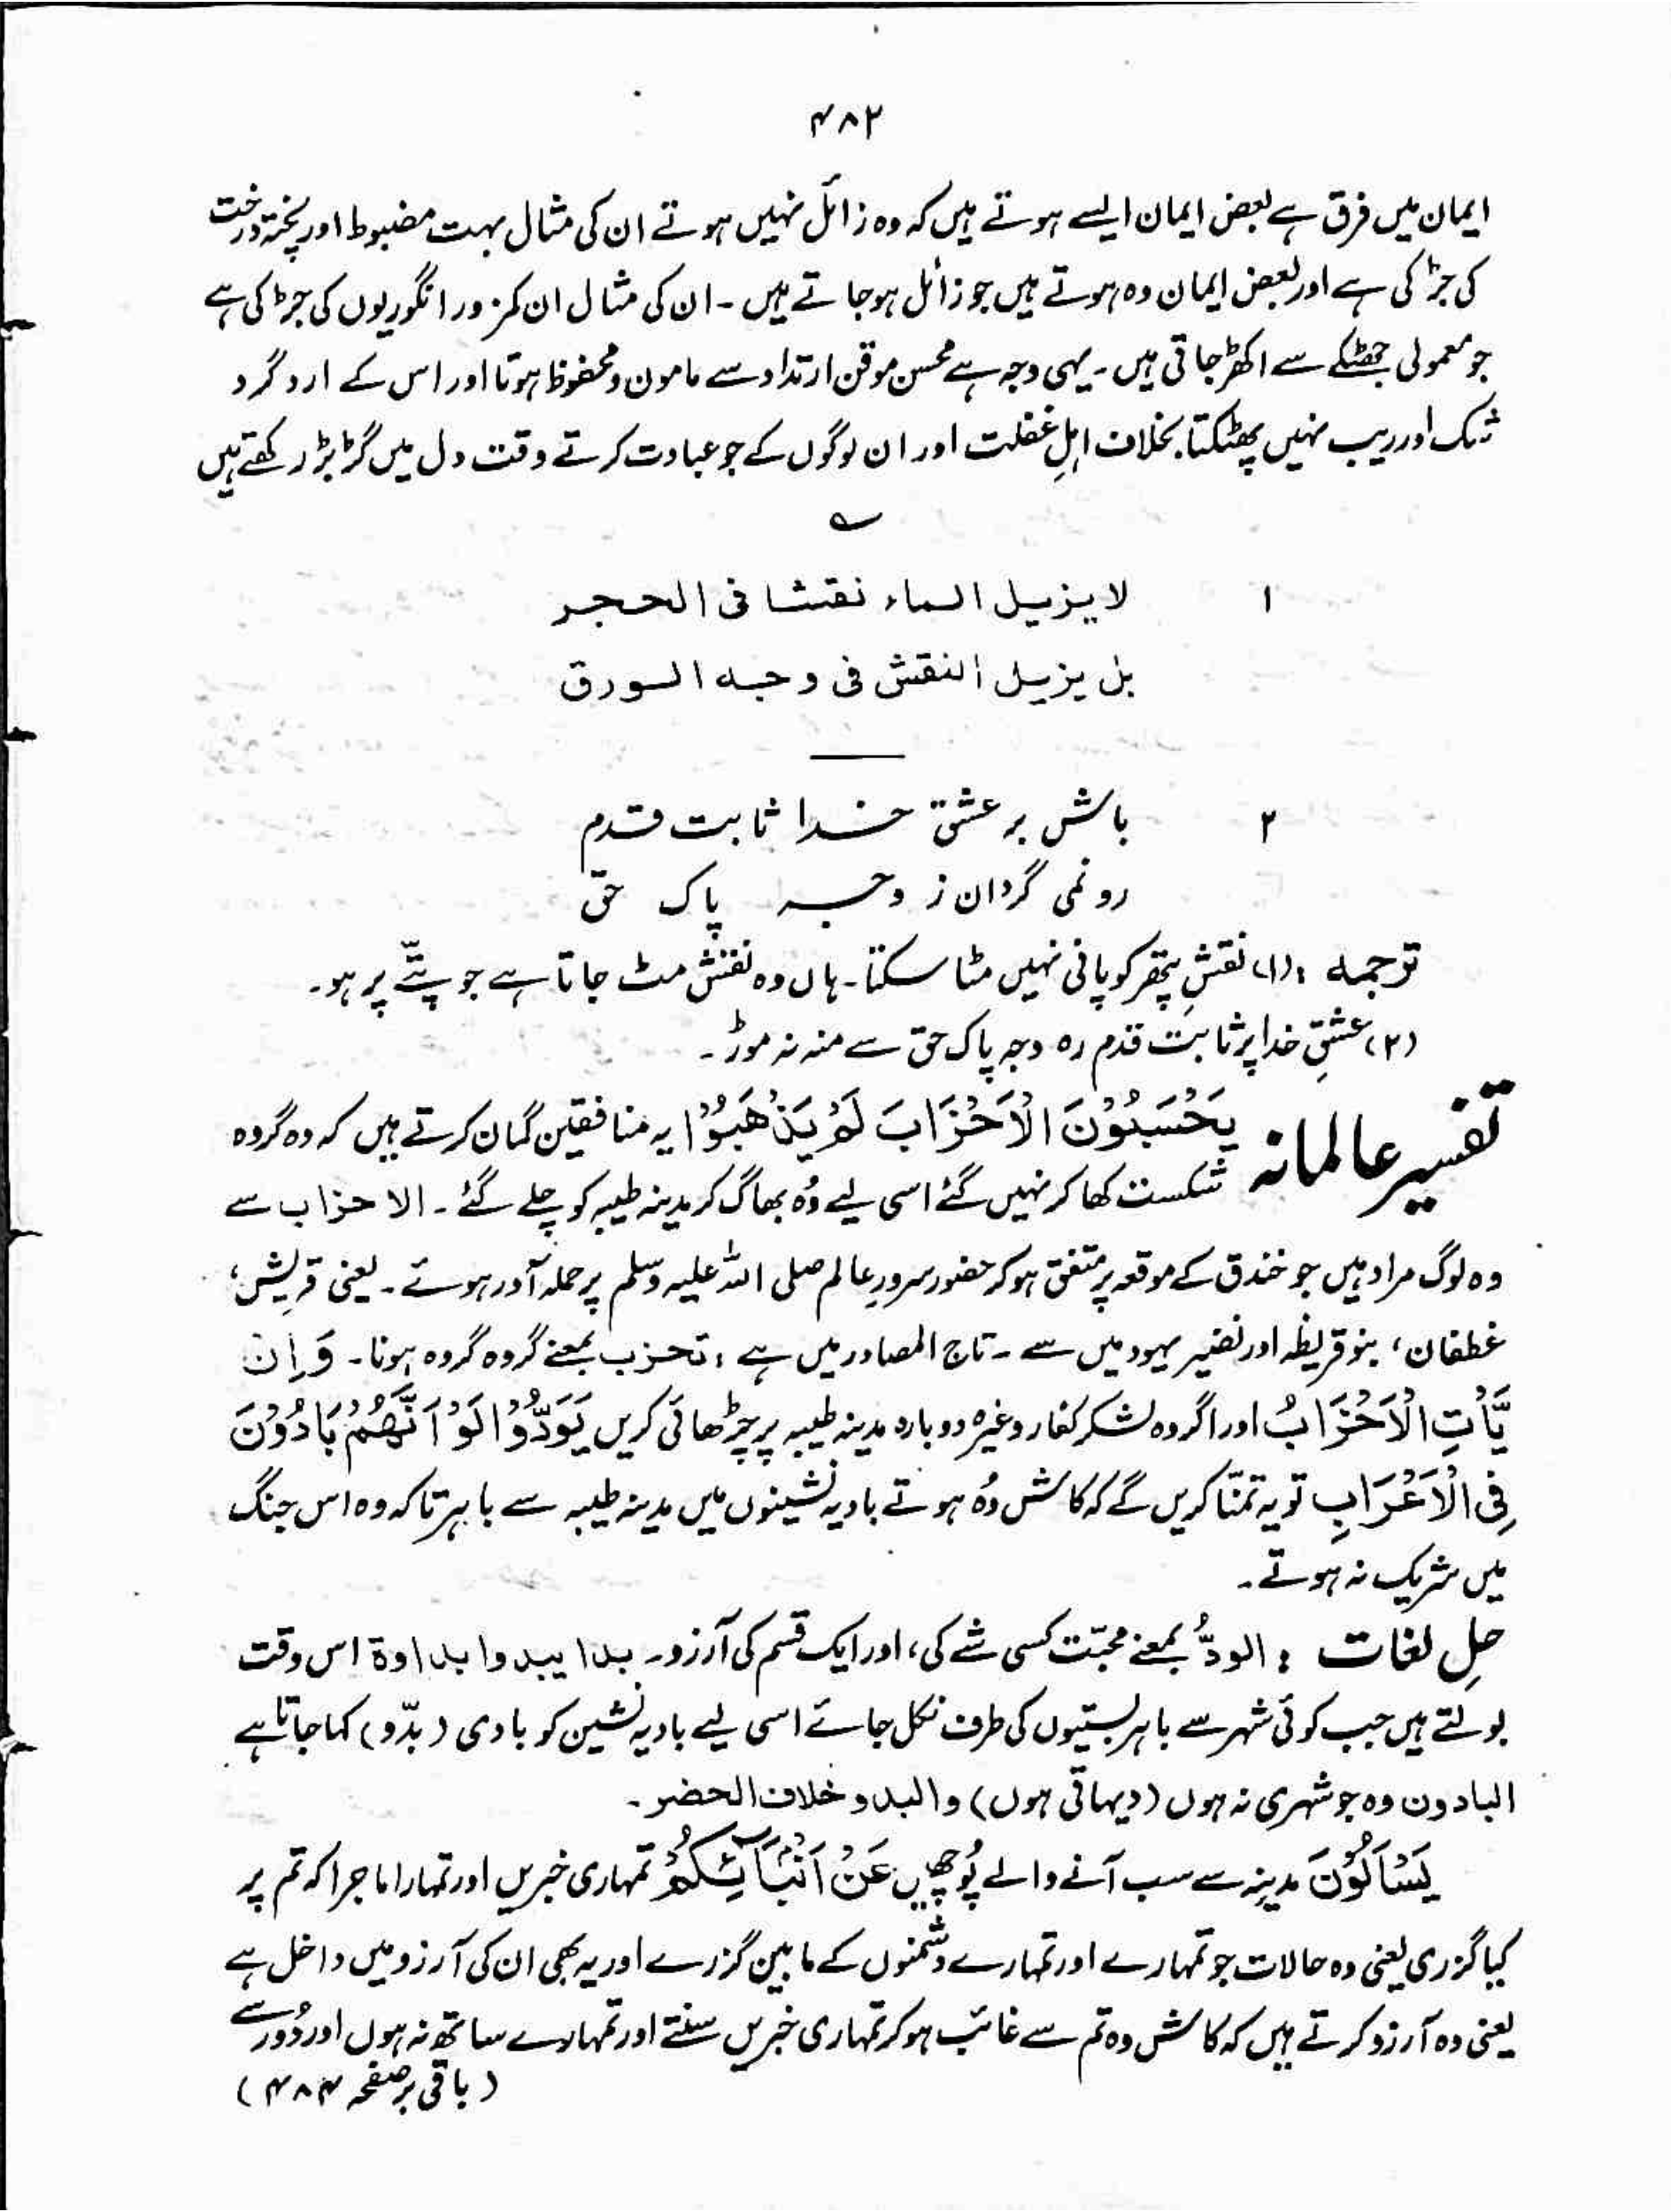 ۴۸۲
ایمان میں فرق ہے بعض ایمان ایسے ہوتے ہیں کہ وہ زائل نہیں ہوتے ان کی مثال بہت مضبوط اور پختہ درخت
کی جڑ کی ہے اور بعض ایمان وہ ہوتے ہیں جو زائل ہو جاتے ہیں ۔ ان کی مثال ان کمزور انگوریوں کی جڑ کی ہے
جو معمولی جھٹکے سے اکھڑ جاتی ہیں ۔ یہی وجہ ہے محسن موقن ارتداد سے مامون و محفوظ ہوتا اور اس کے ارد گرد
شک اور ریب نہیں پھٹکتا بخلاف اہلِ غفلت اور ان لوگوں کے جو عبادت کرتے وقت دل میں گڑبڑ رکھتے ہیں
؎
۱ لا یزیل الماء نقشا فی الحجر
بل یزیل النقش فی وجہ الورق
۲ باش بر عشق خدا ثابت قدم
رو نمی گردان ز وجہ پاک حق
ترجمہ : (۱) نقشِ پتھر کو پانی نہیں مٹا سکتا ۔ ہاں وہ نقش مٹ جاتا ہے جو پتّے پر ہو ۔
(۲) عشقِ خدا پر ثابت قدم رہ وجہ پاک حق سے منہ نہ موڑ ۔
تفسیر عالمانہ یَحْسَبُوْنَ الْاَحْزَابَ لَمْ یَذْھَبُوْا یہ منافقین گمان کرتے ہیں کہ وہ گروہ
شکست کھا کر نہیں گئے اسی لیے وُہ بھاگ کر مدینہ طیبہ کو چلے گئے ۔ الاحزاب سے
وہ لوگ مراد ہیں جو خندق کے موقعہ پر متفق ہو کر حضور سرورِ عالم صلی اللہ علیہ وسلم پر حملہ آور ہوئے ۔ یعنی قریش ،
غطفان ، بنو قریظہ اور نضیر یہود میں سے ۔ تاج المصادر میں ہے : تحزب بمعنے گروہ گروہ ہونا ۔ وَاِنْ
یَّاْتِ الْاَحْزَابُ اور اگر وہ لشکر کفار وغیرہ دوبارہ مدینہ طیبہ پر چڑھائی کریں یَوَدُّوْا لَوْ اَنَّھُمْ بَادُوْنَ
فِی الْاَعْرَابِ تو یہ تمنّا کریں گے کہ کاش وُہ ہوتے بادیہ نشینوں میں مدینہ طیبہ سے باہر تاکہ وہ اس جنگ
میں شریک نہ ہوتے ۔
حلِ لغات : الودُّ بمعنے محبّت کسی شے کی ، اور ایک قسم کی آرزو ۔ بدا یبدوا بداوۃ اس وقت
بولتے ہیں جب کوئی شہر سے باہر بستیوں کی طرف نکل جائے اسی لیے بادیہ نشین کو بادی ( بدّو ) کہا جاتا ہے
البادون وہ جو شہری نہ ہوں ( دیہاتی ہوں ) والبدو خلاف الحضر ۔
یَسْاَلُوْنَ مدینہ سے سب آنے والے پُوچھیں عَنْ اَنْۢبَآئِکُمْ تمہاری خبریں اور تمہارا ماجرا کہ تم پر
کیا گزری یعنی وہ حالات جو تمہارے اور تمہارے دشمنوں کے مابین گزرے اور یہ بھی ان کی آرزو میں داخل ہے
یعنی وہ آرزو کرتے ہیں کہ کاش وہ تم سے غائب ہو کر تمہاری خبریں سنتے اور تمہارے ساتھ نہ ہوں اور دُور سے
( باقی بر صفحہ ۴۸۴ )